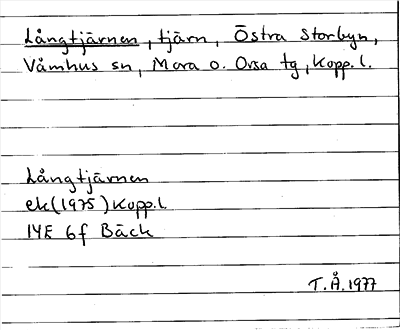 Långtjärnen, tjärn, Östra Storbyn,
Våmhus sn, Mora o. Orsa tg, Kopp. l.
Långtjärnen
ek(1975) Kopp. l
14E 6f Bäck
T.Å. 1977